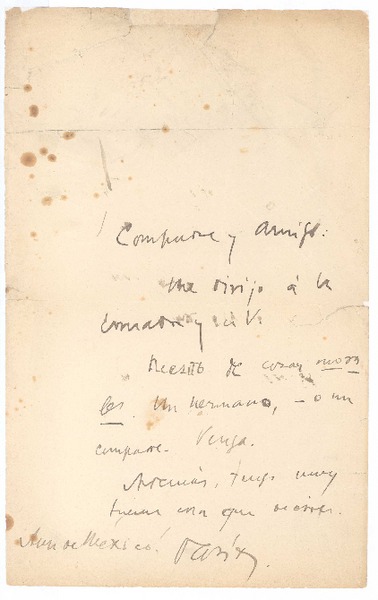 Compadre y amigo:
Me dirijo á la
comadre y á V.
Necesito de cosas mora
les. Un hermano, – o un
compadre. Venga.
Además, tengo muy
buena que decirle.
de Mexico!